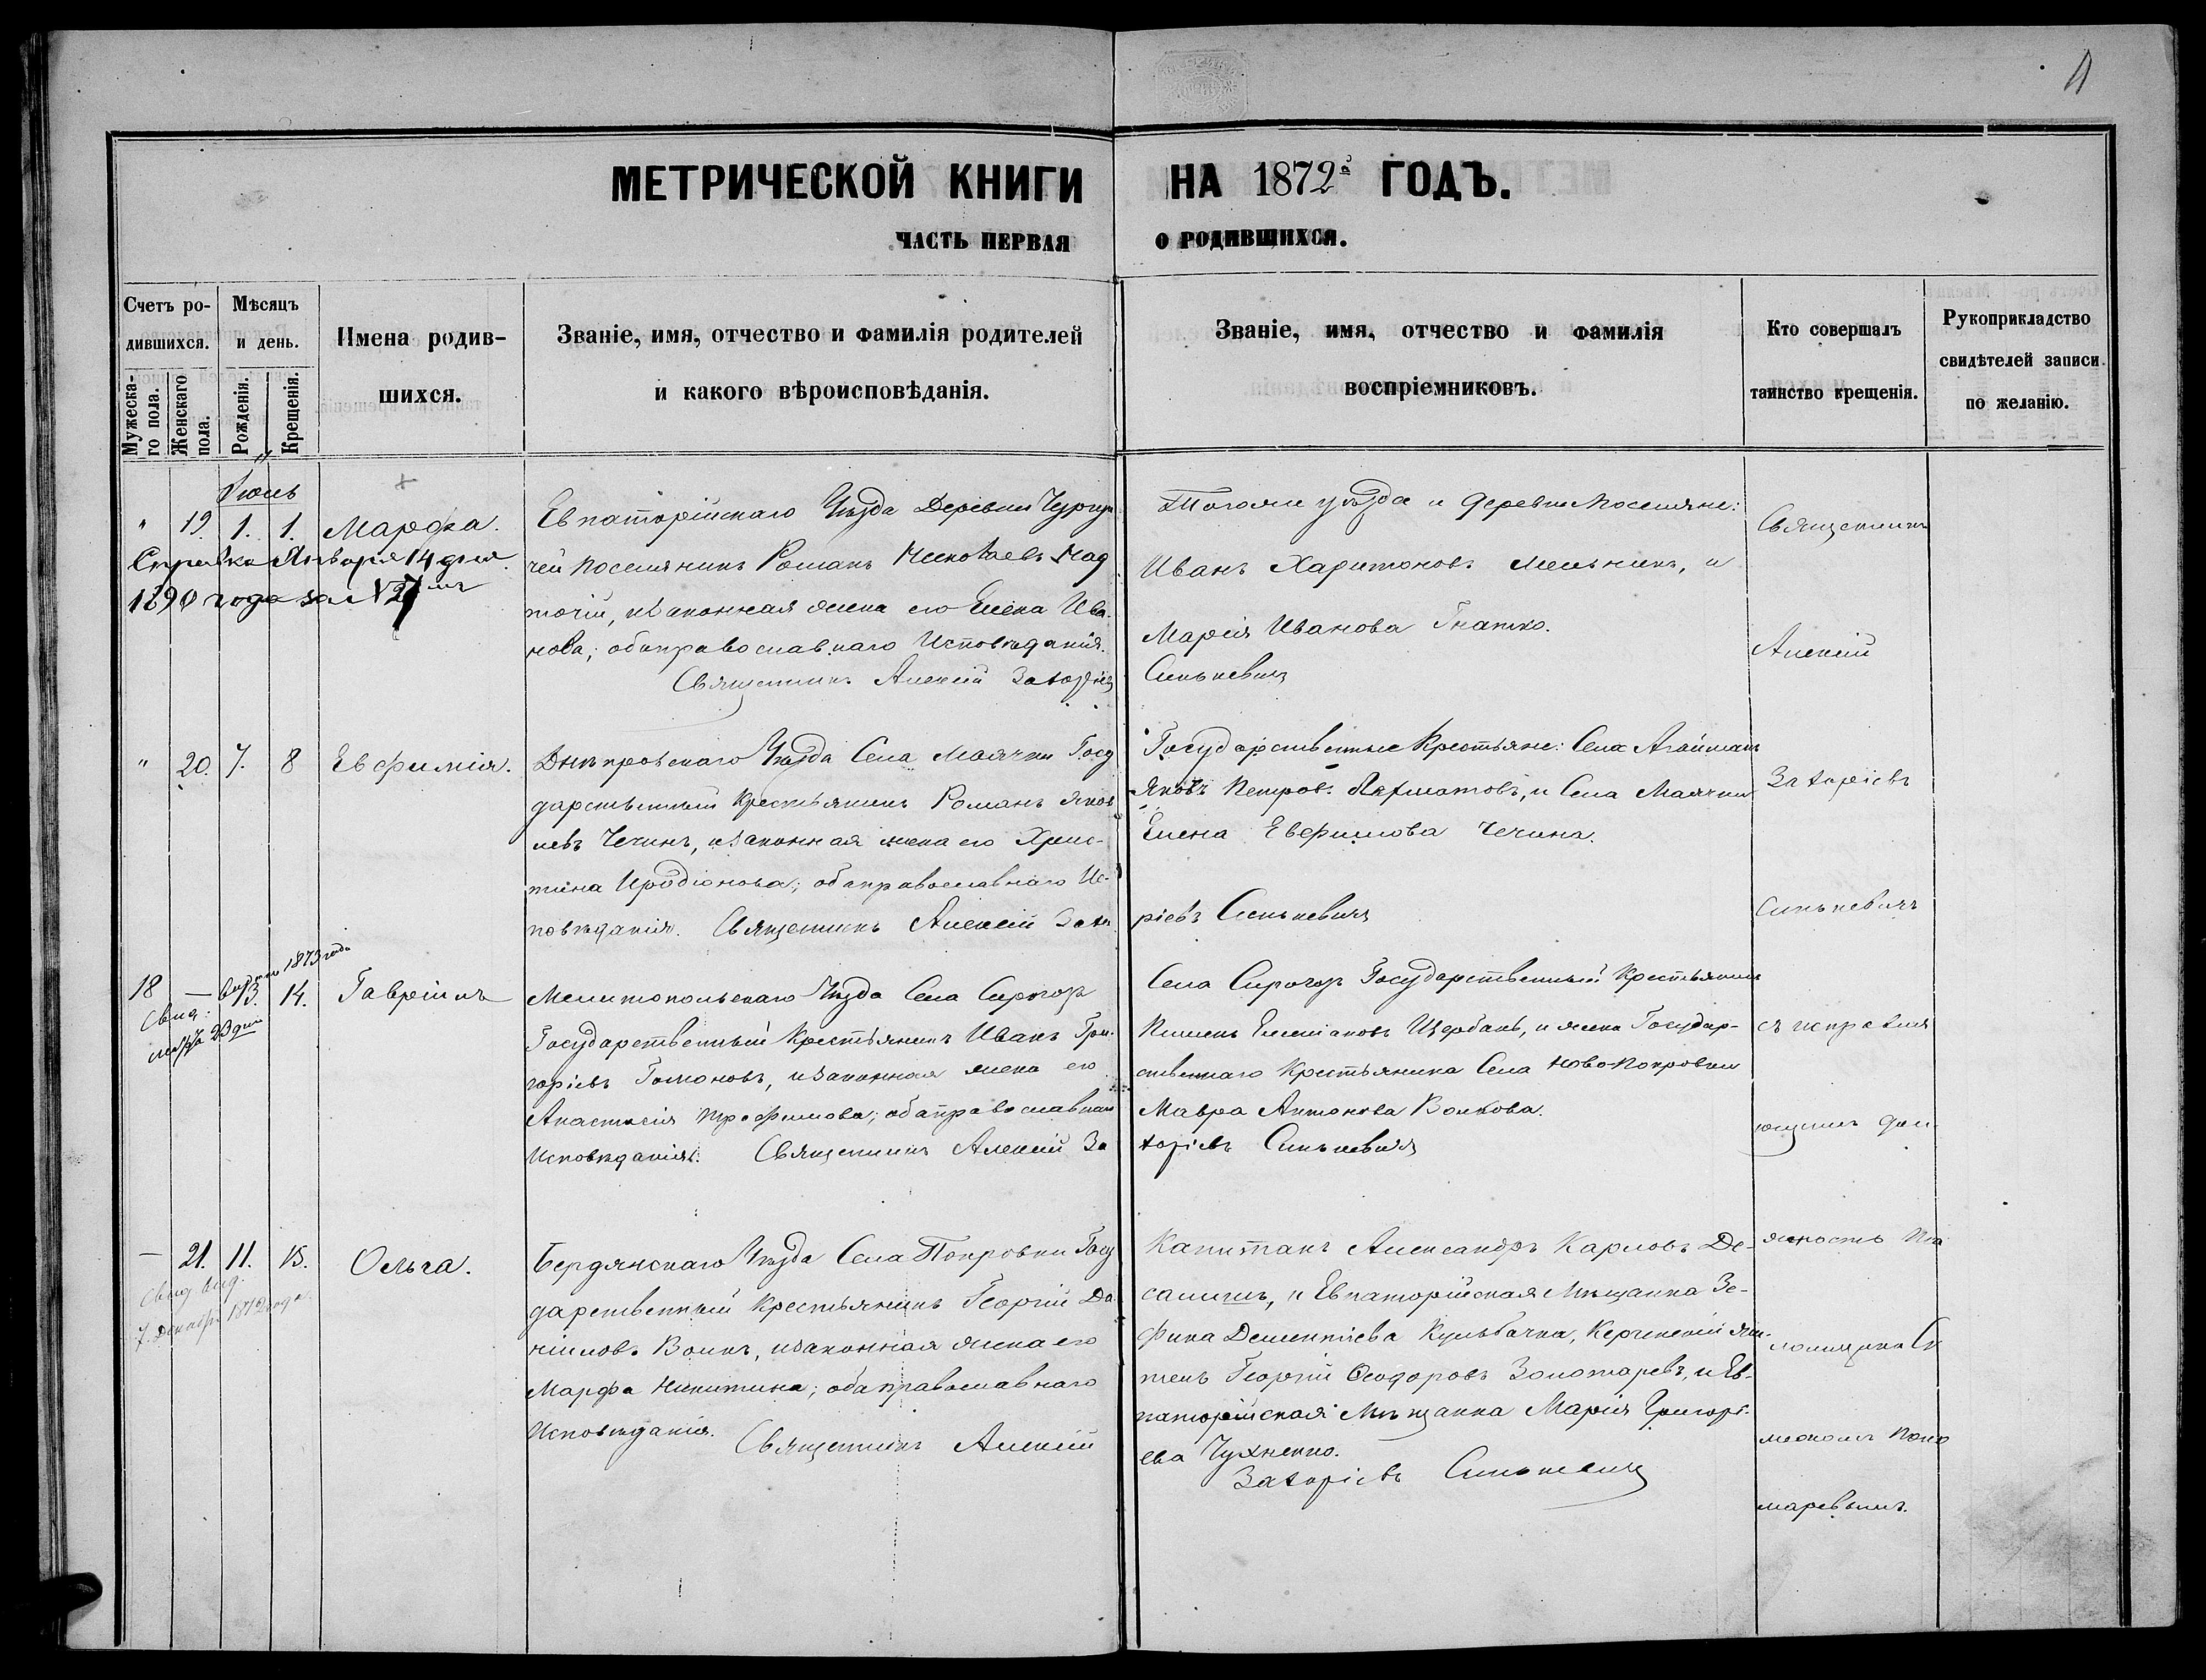 МЕТРИЧЕСКОЙ КНИГИ НА 1872й ГОДЪ.
ЧАСТЬ ПЕРВАЯ О РОДИВШИХСЯ.
Счетъ ро-
дившихся.
Мужеска-
го пола.
Женскаго
пола.
Мѣсяцъ
и день.
Рожденія.
Крещенія.
Имена родив-
шихся.
Званіе, имя, отчество и фамилія родителей
и какого вѣроисповѣданія.
Званіе, имя, отчество и фамилія
воспріемниковъ.
Кто совершалъ
таинство крещенія.
Рукоприкладство
свидѣтелей записи
по желанію.
Іюль
" 19. 1. 1. Марфа.
Справка Января 14 дня
1890 года за N 27мъ
Евпаторійскаго Уѣзда Деревни
чей поселянинъ Романъ
точій, и законная жена его Елена Ива-
нова; оба православнаго Исповѣданія.
Священникъ Алексій
Тогоже уѣзда и деревни поселяне:
Иванъ Харитоновъ Мельникъ, и
Марія Иванова Гнатко.
Синькевичъ
" 20. 7. 8 Евфимія.
Днѣпровскаго Уѣзда Села Маячки Госу
дарственный Крестьянинъ Романъ Яков
левъ Чечинъ, и законная жена его Хрис-
тина Иродіонова; оба православнаго Ис-
повѣданія. Священникъ Алексій
Государственные Крестьяне: Села Агайманъ
Яковъ Петровъ и Села Маячки
Елена Евфимова Чечина.
ріевъ Синькевичъ
18 — 13. 14. Гавріилъ
1873 года
Свид:
23 дня
Мелитопольскаго Уѣзда Села Сирогозъ
Государственный Крестьянинъ Иванъ Гри-
горіевъ Гомоновъ, и законная жена его
Анастасія Трофимова; оба православнаго
Исповѣданія. Священникъ Алексій За
Села Сирогозъ Государственный Крестьянинъ
Пименъ Емеліановъ Щербань, и жена Государ-
ственнаго Крестьянина Села Ново-Покровки
Мавра Антонова Волкова.
Синькевичъ
— 21. 11. 15. Ольга.
Свид. выд.
7. Декабря 1872 года
Бердянскаго Уѣзда Села Покровки Госу
дарственный Крестьянинъ Георгій Да
ніиловъ Волкъ, и законная жена его
Марфа Никитина; оба православнаго
Исповѣданія.
Священникъ Алексій
Капитанъ Александръ Карловъ Де-
и Евпаторійская Мѣщанка Зе-
фина Дементіева Кульбачка, Керченскій жи-
тель Георгій Ѳеодоровъ Золотаревъ, и Ев-
паторійская Мѣщанка Марія Григорі-
ева Чухненко.
Синькевичъ
Священникъ
Алексій
Синькевичъ
съ исправля
ющимъ дол-
жность Пса
ломщика